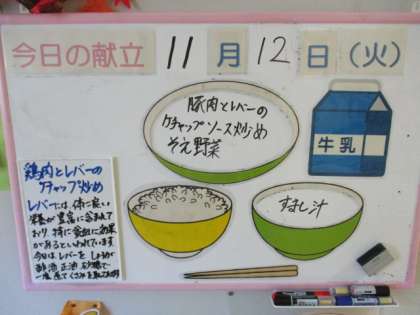 今日の献立 11月12日(火)
豚肉とレバーの
ケチャップソース炒め
そえ野菜
牛乳
すまし汁
鶏肉とレバーの
ケチャップ炒め
レバーは、体に良い
栄養が豊富に含まれて
おり、特に貧血に効果
があるといわれています
今日は、レバーをしょうが